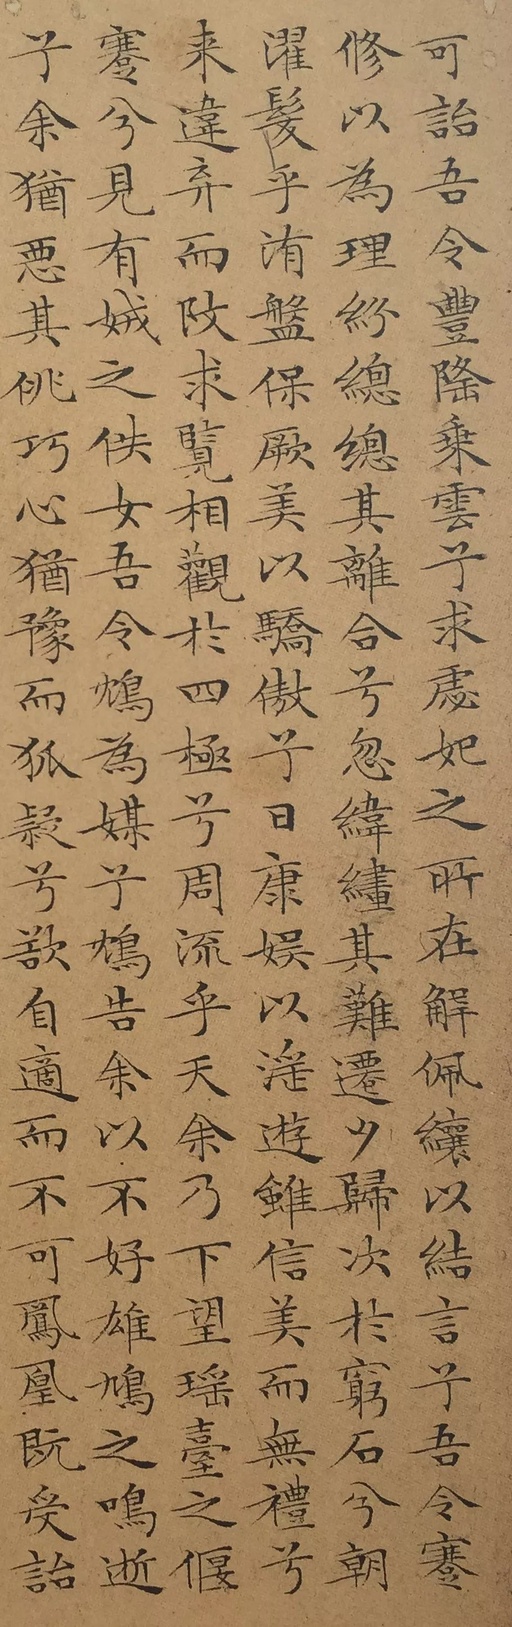 可詒吾令豐隆乗雲兮求虙妃之所在解佩纕以結言兮吾令蹇
修以為理紛總總其離合兮忽緯繣其難遷夕歸次於窮石兮朝
濯髮乎洧盤保厥美以驕傲兮日康娱以淫遊雖信美而無禮兮
来違弃而改求覽相觀於四極兮周流乎天余乃下望瑶臺之偃
蹇兮見有娀之佚女吾令鴆為媒兮鴆告余以不好雄鳩之鳴逝
兮余猶悪其佻巧心猶豫而狐疑兮欲自適而不可鳳凰既受詒